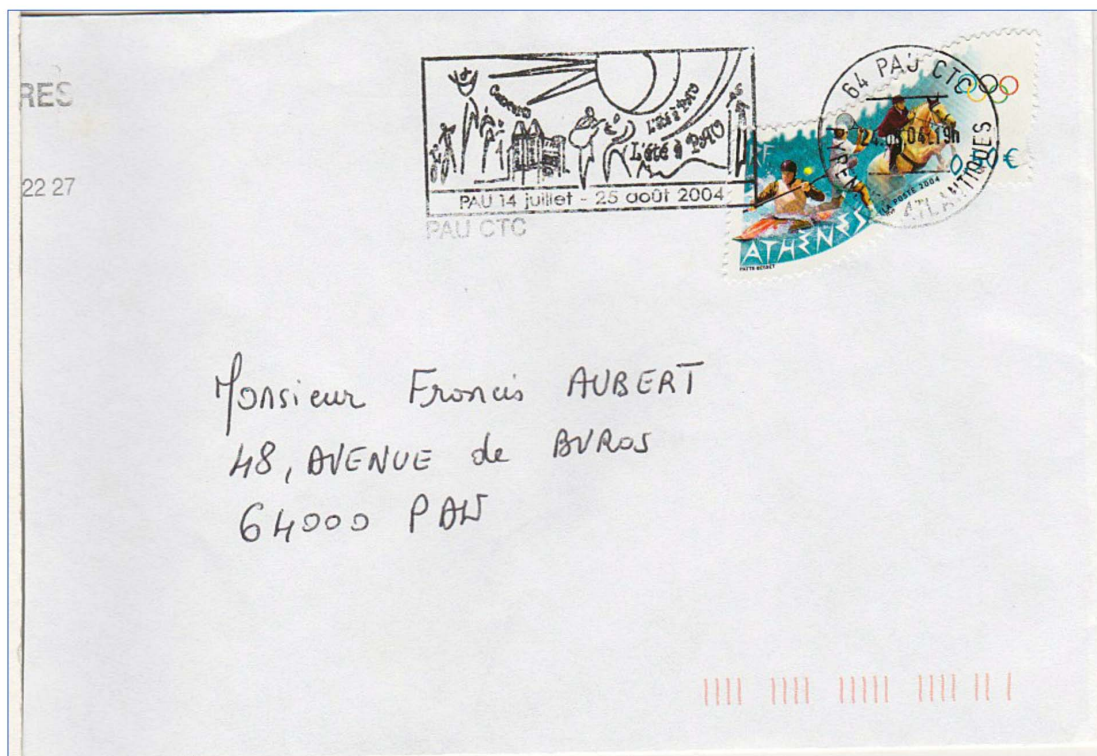 RES
22 27
L'été à PAU
L'été à PAU
PAU 14 juillet - 25 août 2004
PAU CTC
64 PAU CTC
19h
PYRENEES ATLANTIQUES
RF
€
LA POSTE 2004
ATHÈNES
Monsieur Francis AUBERT
48, AVENUE de BUROS
64000 PAU